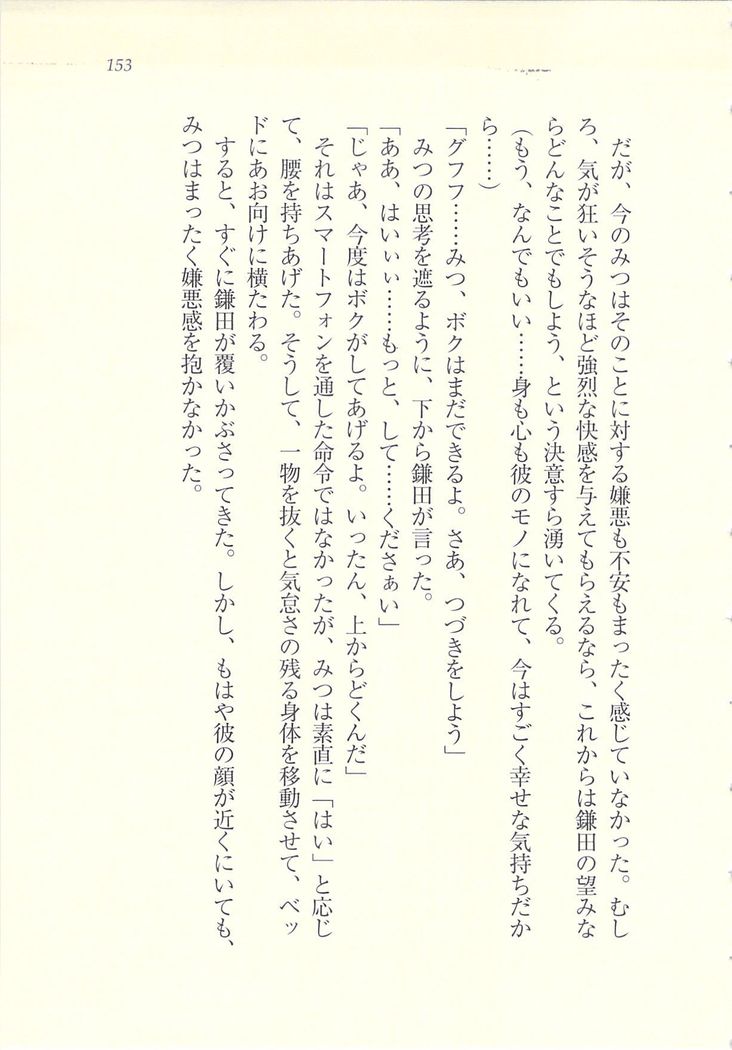 153
だが、今のみつはそのことに対する嫌悪も不安もまったく感じていなかった。むし
ろ、気が狂いそうなほど強烈な快感を与えてもらえるなら、これからは鎌田の望みな
らどんなことでもしよう、という決意すら湧いてくる。
(もう、なんでもいい……身も心も彼のモノになれて、今はすごく幸せな気持ちだか
ら……)
「グフフ……みつ、ボクはまだできるよ。さあ、つづきをしよう」
みつの思考を遮るように、下から鎌田が言った。
「ああ、はいぃぃ……もっと、して……くださぁい」
「じゃあ、今度はボクがしてあげるよ。いったん、上からどくんだ」
それはスマートフォンを通した命令ではなかったが、みつは素直に「はい」と応じ
て、腰を持ちあげた。そうして、一物を抜くと気怠さの残る身体を移動させて、ベッ
ドにあお向けに横たわる。
すると、すぐに鎌田が覆いかぶさってきた。しかし、もはや彼の顔が近くにいても、
みつはまったく嫌悪感を抱かなかった。